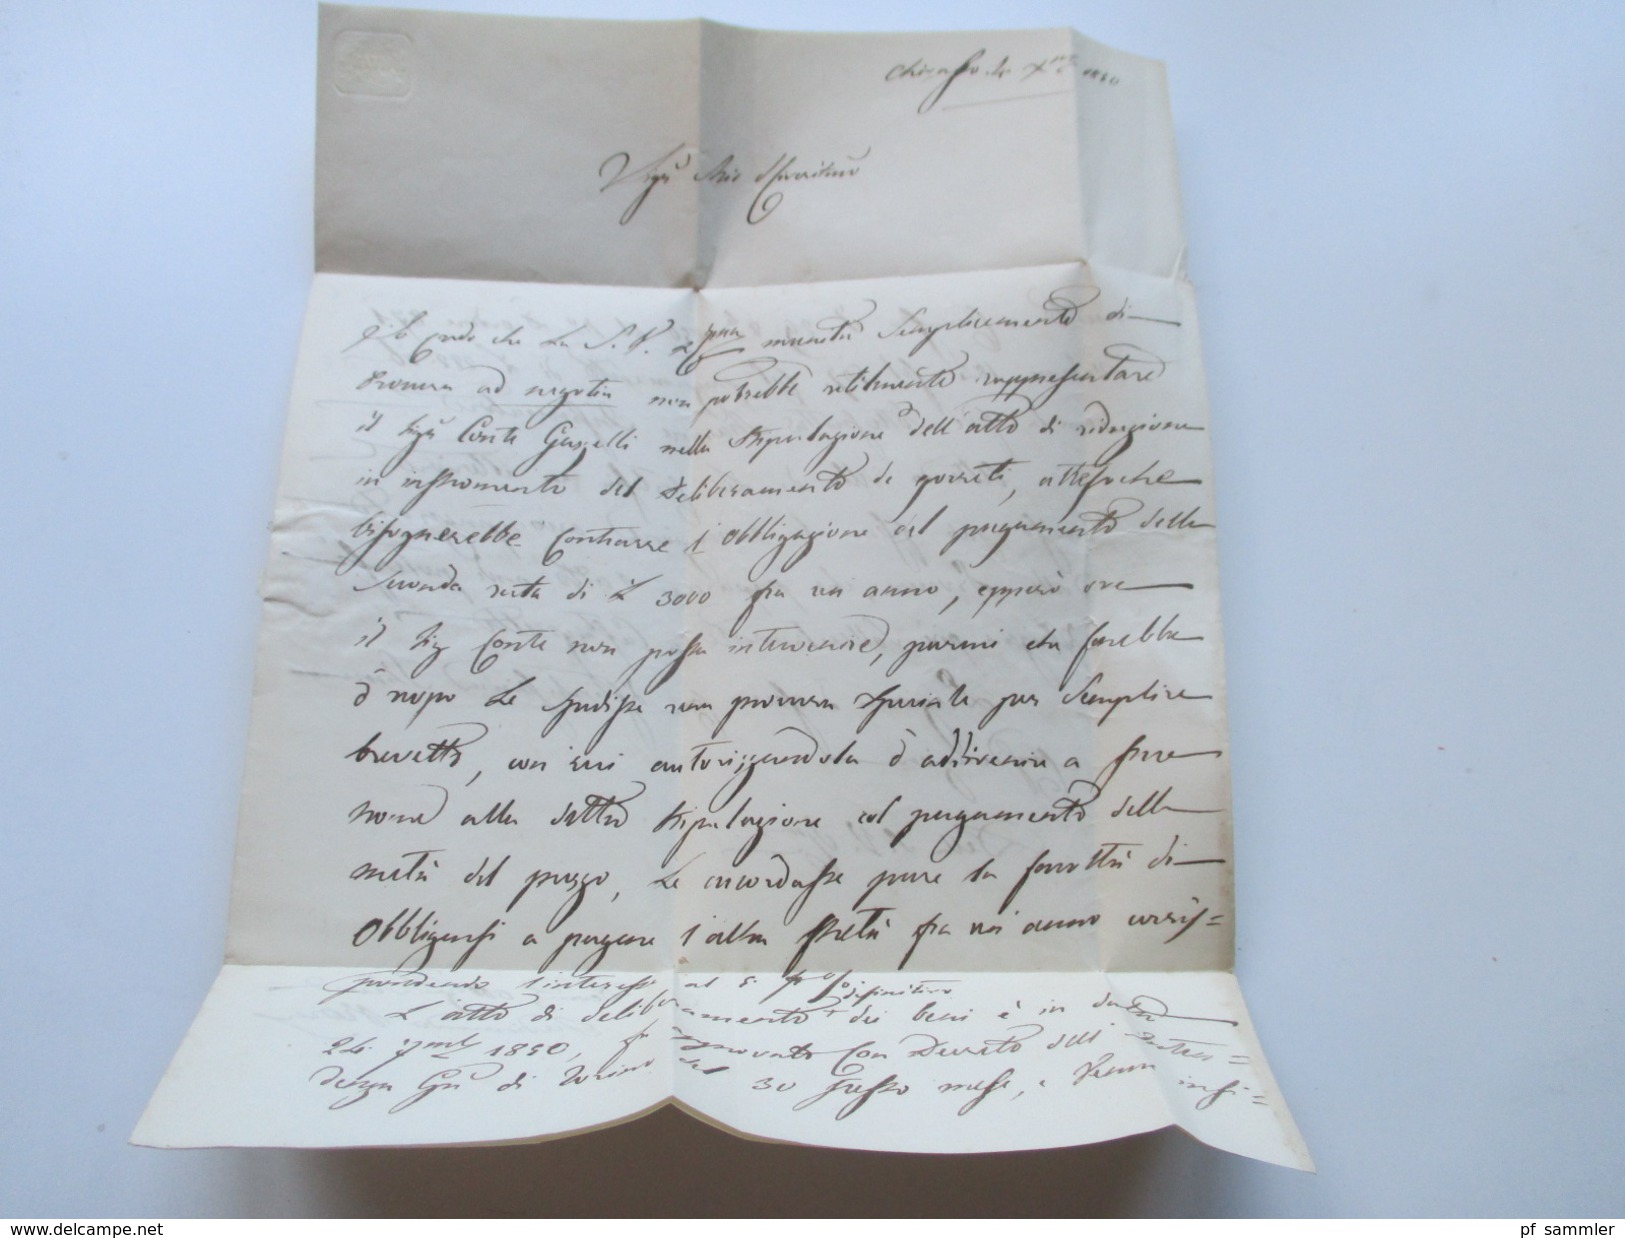 1850
Sig.r Mio
credo che la S. V. munita semplicemente di
procura ad negotia non potrebbe utilmente rappresentare
il Sig.r Conte nella stipulazione dell'atto di riduzione
in instromento del deliberamento de
bisognerebbe contrarre l'obbligazione al pagamento della
seconda rata di L. 3000 fra un anno, eppiù ove
il Sig. Conte non possa intervenire, parmi che farebbe
d'uopo Le spedisse una procura speciale per semplice
brevetto, con cui autorizzandola d'addivenire a suo
nome alla detta stipulazione col pagamento della
metà del prezzo, Le accordasse pure la facoltà di
obbligarsi a pagare l'altra metà fra un anno corris=
pondendo l'interesse al 5 p %
definitivo
L'atto di deliberamento dei beni è in data
24 7mbre 1850, fu approvato con Decreto dell' Inten=
denza Gen. di Torino del 30 stesso mese, e